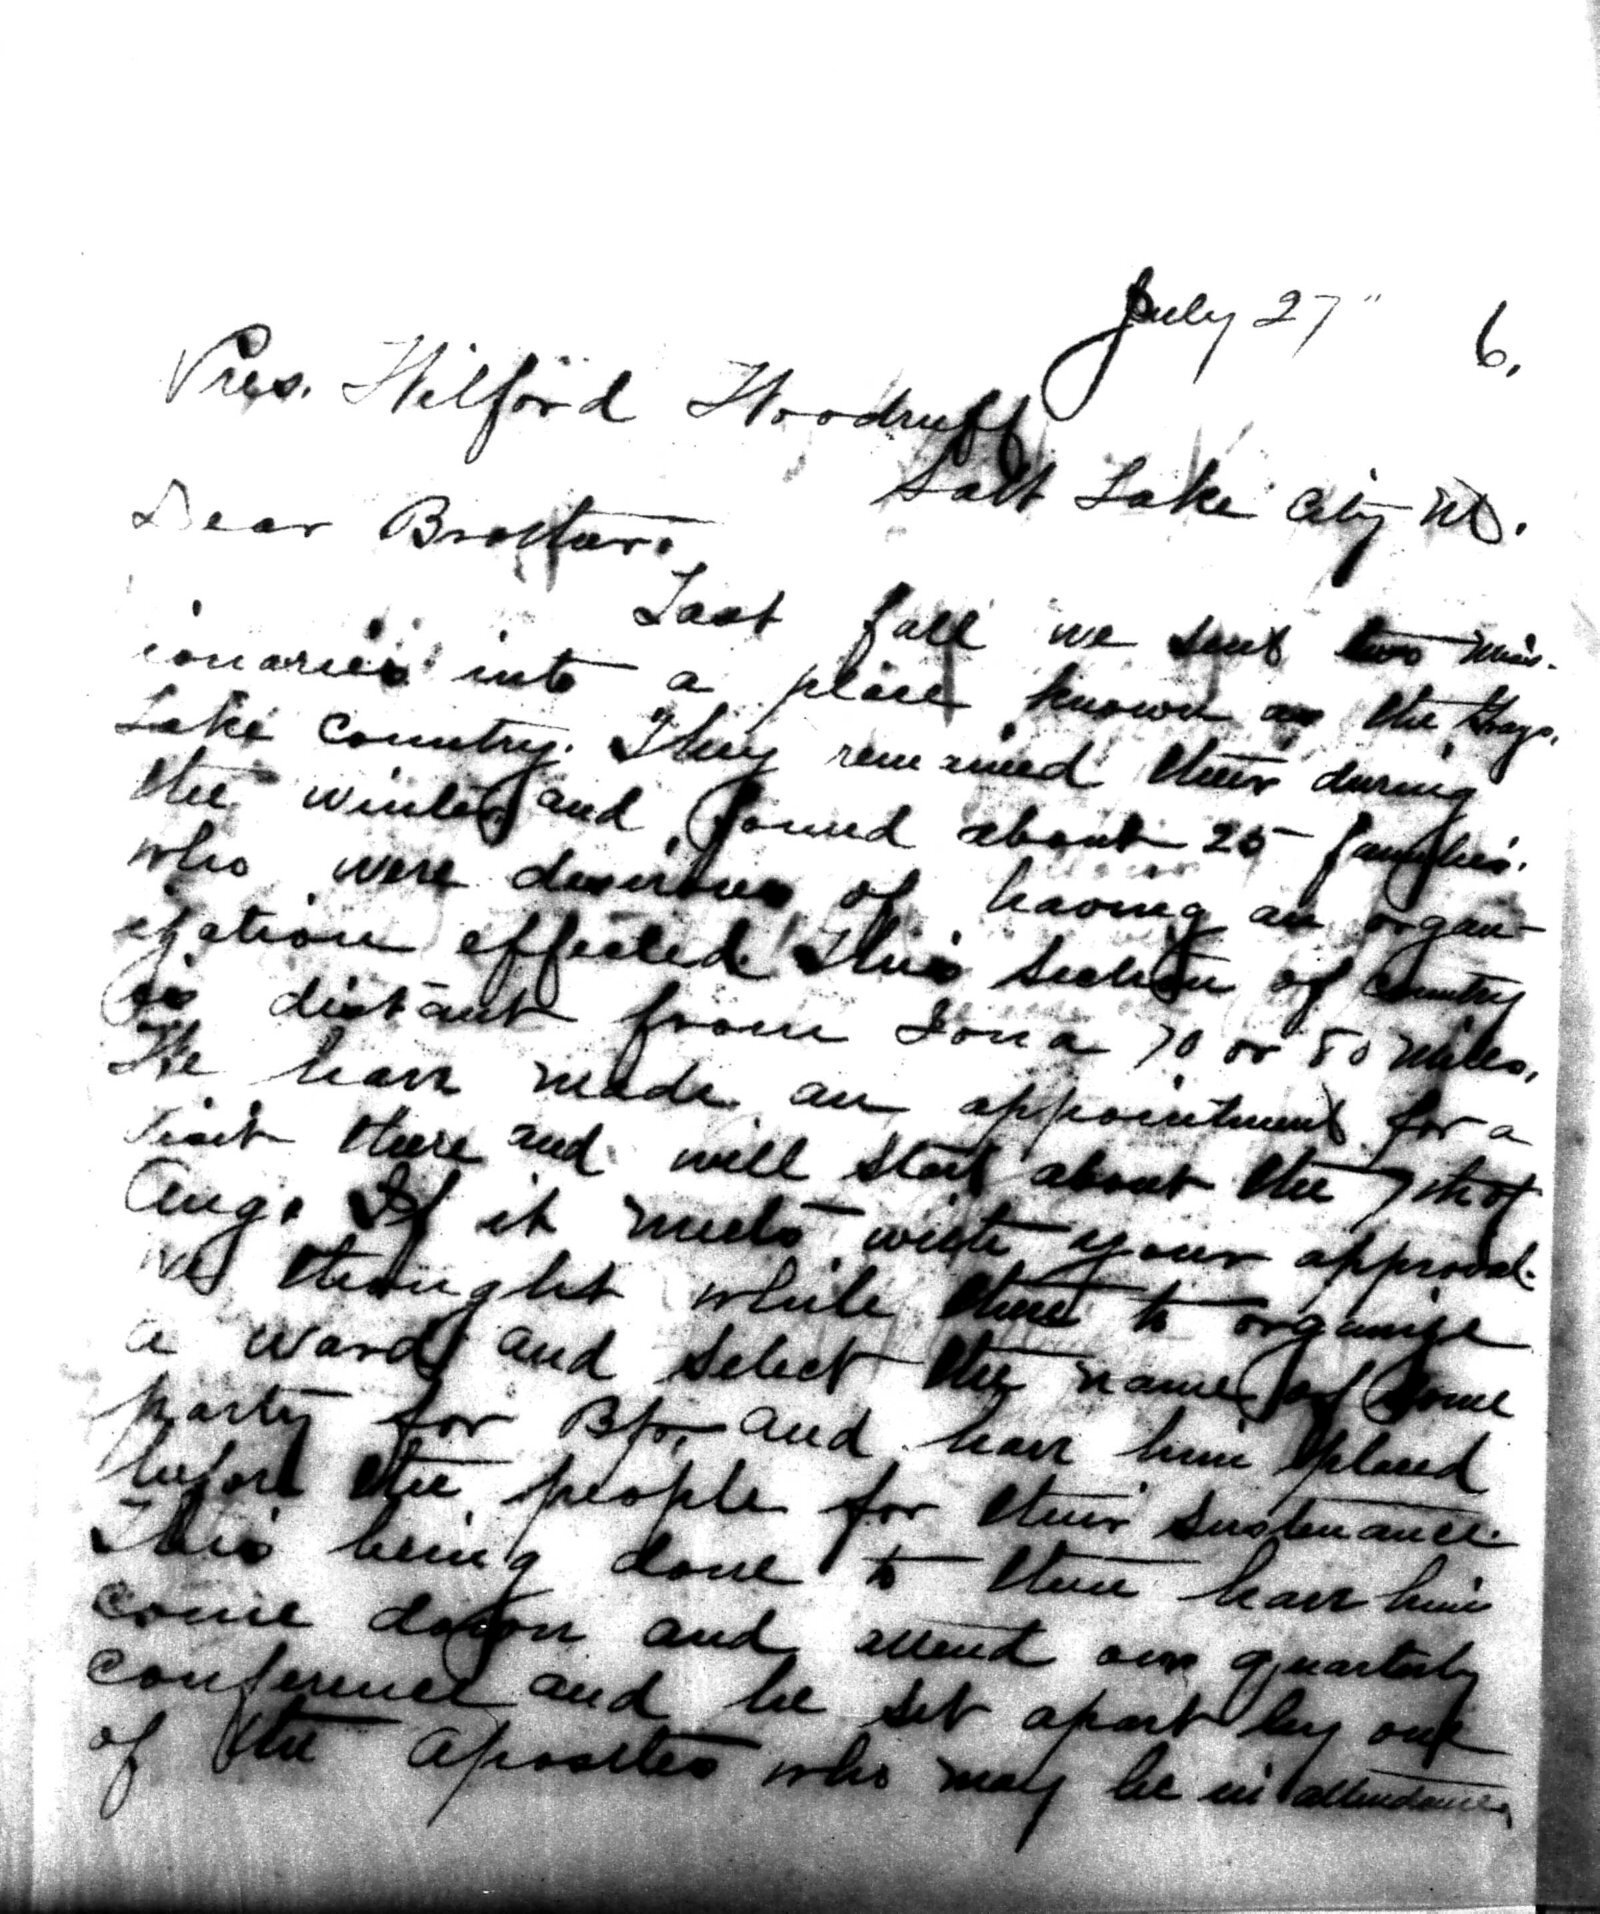 July 27" 6.
Pres. Wilford Woodruff
Salt Lake City Ut.
Dear Brother.
Last fall we sent two miss-
ionaries into a place known as the Grays.
Lake Country. They remained their during
the winter and found about 25 families.
who were desirous of having an organ-
ization effected. This section of country
is distant from Iona 70 or 80 miles.
We have made an appointment for a
visit there and will start about the 7th of
Aug. If it meets with your approval.
we thought while there to organize
a ward and select the name of some
party for Bp. and have him placed
before the people for their sustenance.
This being done to then have him
come down and attend our quarterly
conference and be set apart by one
of the apostles who may be in attendance,